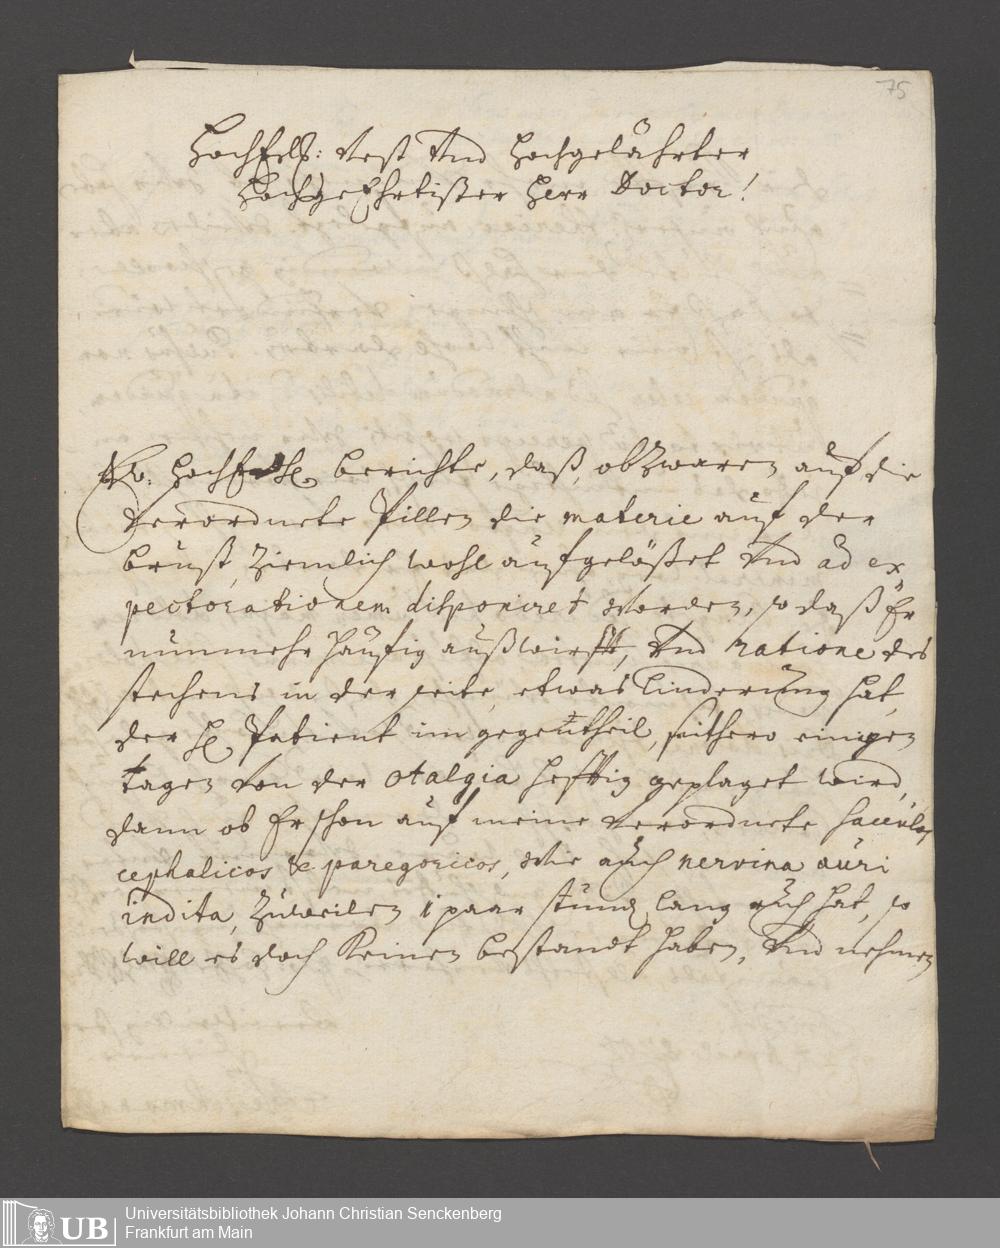 75
HochEdl: Vest Vnd Hochgelährter
HochgeEhrtister Herr Doctor!
Ew: HochEdl. berichte, daß, obzwaren auf die
verordnete Pillen die materie auf der
brust, ziemlich wohl aufgelößet Vnd ad ex
pectorationem disponiret worden, so daß Er
nunmehr häufig außwirfft, Vnd ratione des
stechens in der seite, etwas linderung hat,
der H. Patient im gegentheil, seithero einigen
tagen von der otalgia hefftig geplaget wird,
dann ob Er schon auf meine verordnete sacculos
cephalicos & paregoricos, wie auch nervina auri
indita, zuweilen 1 paar stund lang ruh hat, so
will es doch keinen bestandt haben, Vnd nehmen
UB
Universitätsbibliothek Johann Christian Senckenberg
Frankfurt am Main